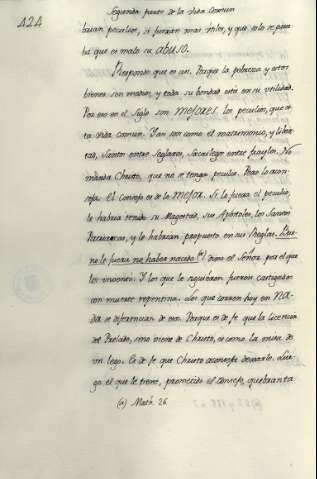 424
Segunda parte de la Vida Comun
buian peculios, si fueran mas utiles, y que solo se prue-
ba que es malo su abuso.
Respondo que es asi. Porque la pobreza y estos
bienes son medios, y toda su bondad está en su utilidad.
Por eso en el Siglo son mejores los peculios, que es-
ta vida comun. Y asi son como el matrimonio, y liber-
tad, Santos entre Seglares, Sacrilegos entre frayles. No
manda Christo, que no se tenga peculio. Pero lo acon-
seja. El consejo es de lo mejor. Si lo fuera el peculio,
le habria tenido su Magestad, sus Apóstoles, los Santos
Patriarcas, y le habrian propuesto en sus Reglas. Bue-
no le fuera no haber nacido (a) dixo el Señor por el que
los inventó. Y los que le siguieron fueron castigados
con muerte repentina. Los que corren hoy en na-
da se diferencian de esos. Porque es de fe que la licencia
del Prelado, sino viene de Christo, es como la misa de
un lego. Es de fe que Christo aconseja dexarlo. Lue-
go el que le tiene, prometido el consejo, quebranta
(a) Math. 26